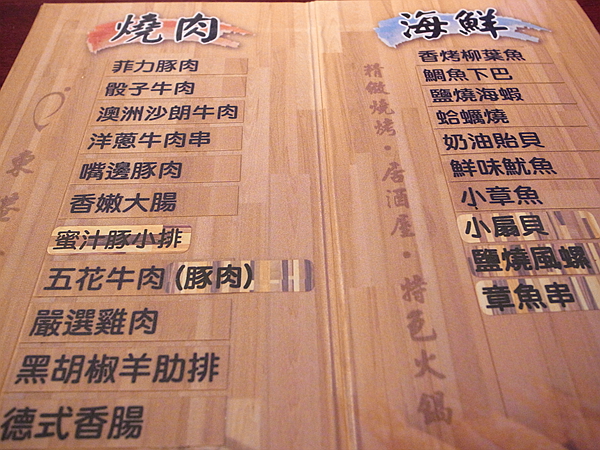 燒肉
菲力豚肉
骰子牛肉
澳洲沙朗牛肉
洋蔥牛肉串
嘴邊豚肉
香嫩大腸
蜜汁豚小排
五花牛肉(豚肉)
嚴選雞肉
黑胡椒羊肋排
德式香腸
海鮮
香烤柳葉魚
鯛魚下巴
鹽燒海蝦
蛤蠣燒
奶油貽貝
鮮味魷魚
小章魚
小扇貝
鹽燒風螺
章魚串
精緻燒烤・居酒屋・特色火鍋